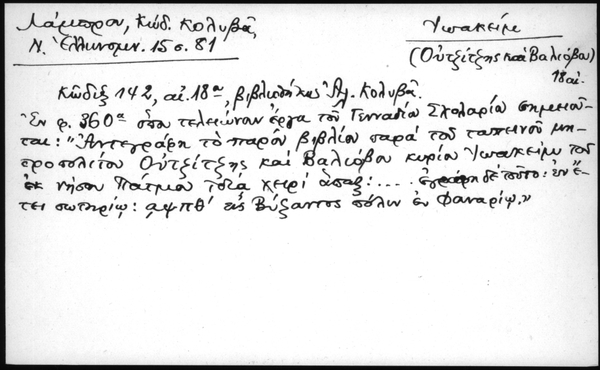 Λάμπρου, Κώδ. Κολυβᾶ,
Ν. Ἑλληνομν. 15 σ. 81
Ἰωακείμ
(Οὐτζίτζης καὶ Βαλιόβου)
18 αἰ.
Κῶδιξ 142, αἰ. 18ος, βιβλιοθήκης Ἀλ. Κολυβᾶ.
Ἐν φ. 360α ὅπου τελειώνουν ἔργα τοῦ Γενναδίου Σχολαρίου σημειοῦ-
ται: "Ἀντεγράφη τὸ παρὸν βιβλίον παρὰ τοῦ ταπεινοῦ μη-
τροπολίτου Οὐτζίτζης καὶ Βαλιόβου κυρίου Ἰωακείμ τοῦ
ἐκ νήσου Πάτμου τοὐπίκ χειρί ἅπαξ: .... ἐγράφη δὲ τοῦτο: ἐν ἔ-
τει σωτηρίῳ: ͵αψπθ' εἰς Βύζαντος πόλιν ἐν Φαναρίῳ."